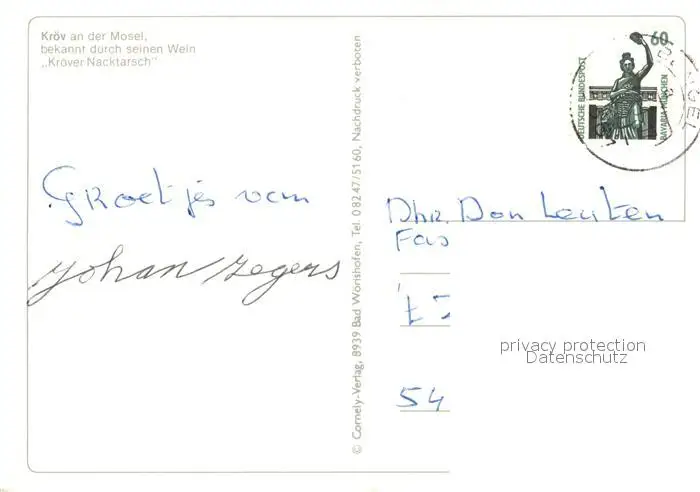 Kröv an der Mosel,
bekannt durch seinen Wein
„Kröver Nacktarsch"
Groetjes van
Johan Zegers
© Cornely-Verlag, 8939 Bad Wörishofen, Tel. 08247/5160, Nachdruck verboten
60
DEUTSCHE BUNDESPOST
BAVARIA MÜNCHEN
Dhr. Don Leuten
Fas
54
privacy protection
Datenschutz